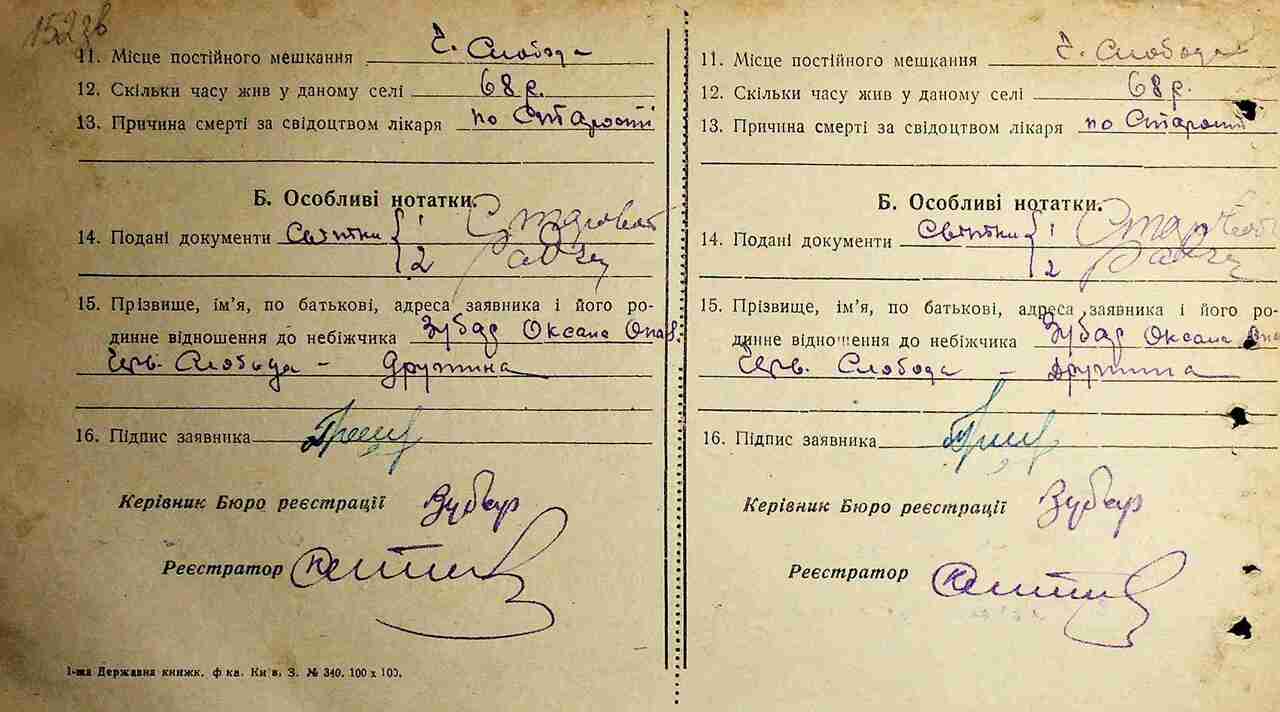 152зв
11. Місце постійного мешкання Ч. Слобода
12. Скільки часу жив у даному селі 68 р.
13. Причина смерті за свідоцтвом лікаря по Старості
Б. Особливі нотатки.
14. Подані документи Свитки { 1
2
15. Прізвище, ім'я, по батькові, адреса заявника і його ро-
динне відношення до небіжчика Зубар Оксана Опан.
Черв. Слобода - Дружина
16. Підпис заявника
Керівник Бюро реєстрації Зубар
Реєстратор
1-ша Державна книжк. ф-ка. Київ, З. № 340. 100 х 100.
11. Місце постійного мешкання Ч. Слобода
12. Скільки часу жив у даному селі 68 р.
13. Причина смерті за свідоцтвом лікаря по Старості
Б. Особливі нотатки.
14. Подані документи Свитки { 1
2
15. Прізвище, ім'я, по батькові, адреса заявника і його ро-
динне відношення до небіжчика Зубар Оксана
Черв. Слобода - Дружина
16. Підпис заявника
Керівник Бюро реєстрації Зубар
Реєстратор